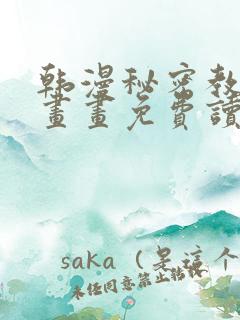 韩漫秘密教
画画免费读
saka（是这个
未经同意禁止转载